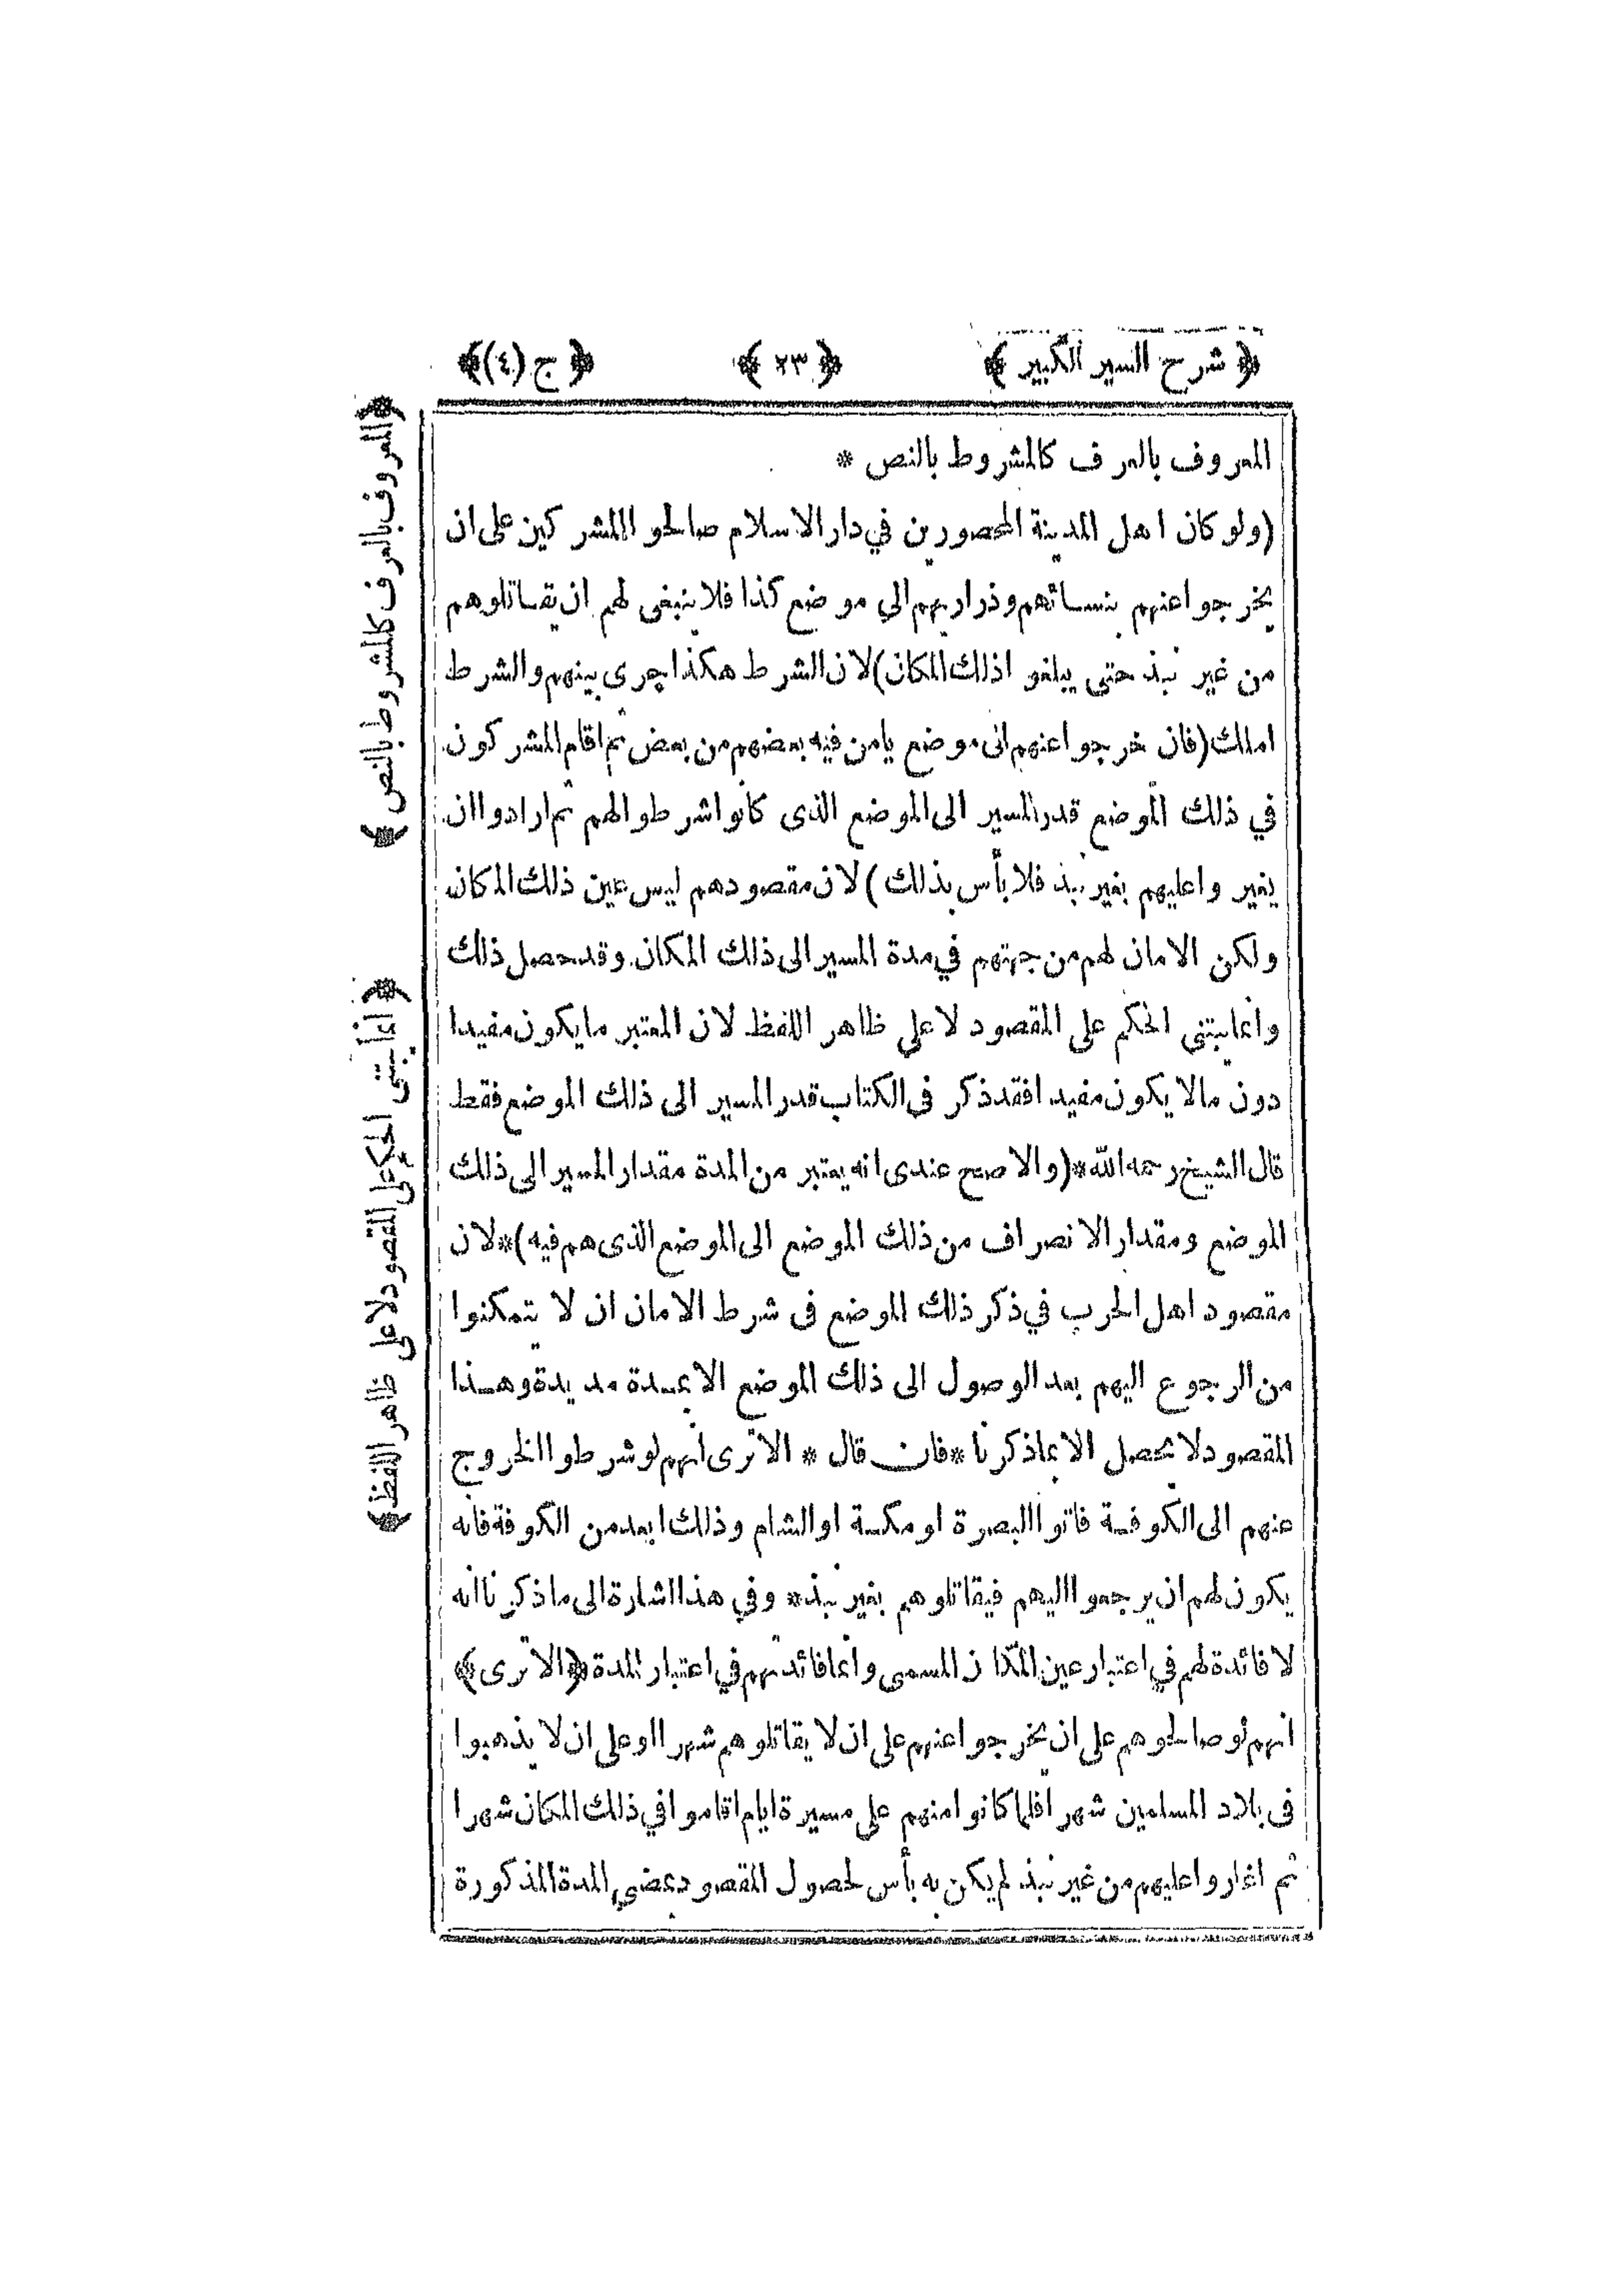 ﴿ شرح السير الكبير ﴾ ﴿ ٢٣ ﴾ ﴿ ج (٤) ﴾
المعروف بالعرف كالمشروط بالنص *
(ولو كان اهل المدينة المحصورين في دار الاسلام صالحوا المشركين على ان
يخرجوا عنهم بنسائهم وذراريهم الى موضع كذا فلا ينبغى لهم ان يقاتلوهم
من غير نبذ حتى يبلغوا ذلك المكان) لان الشرط هكذا جرى بينهم والشرط
املك (فان خرجوا عنهم الى موضع يامن فيه بعضهم من بعض ثم اقام المشركون
في ذلك الموضع قدر المسير الى الموضع الذى كانوا شرطوا لهم ثم ارادوا ان
يغيروا عليهم بغير نبذ فلا بأس بذلك) لان مقصودهم ليس عين ذلك المكان
ولكن الامان لهم من جهتهم في مدة المسير الى ذلك المكان وقد حصل ذلك
وانما يبتنى الحكم على المقصود لا على ظاهر اللفظ لان المعتبر ما يكون مفيدا
دون ما لا يكون مفيدا فقد ذكر فى الكتاب قدر المسير الى ذلك الموضع فقط
قال الشيخ رحمه الله * (والاصح عندى انه يعتبر من المدة مقدار المسير الى ذلك
الموضع ومقدار الانصراف من ذلك الموضع الى الموضع الذى هم فيه) * لان
مقصود اهل الحرب في ذكر ذلك الموضع فى شرط الامان ان لا يتمكنوا
من الرجوع اليهم بعد الوصول الى ذلك الموضع الا بمدة مديدة وهذا
المقصود لا يحصل الا بما ذكرنا * فان قال * الا ترى انهم لو شرطوا الخروج
عنهم الى الكوفة فاتوا البصرة او مكة او الشام وذلك ابعد من الكوفة فانه
يكون لهم ان يرجعوا اليهم فيقاتلوهم بغير نبذ * وفي هذا اشارة الى ما ذكرنا انه
لا فائدة لهم في اعتبار عين المكان المسمى وانما فائدتهم في اعتبار المدة ﴿ الا ترى ﴾
انهم لو صالحوهم على ان يخرجوا عنهم على ان لا يقاتلوهم شهرا او على ان لا يذهبوا
فى بلاد المسلمين شهرا فلما كانوا منهم على مسيرة ايام اقاموا في ذلك المكان شهرا
ثم اغاروا عليهم من غير نبذ لم يكن به بأس لحصول المقصود بمضي المدة المذكورة
﴿ المعروف بالعرف كالمشروط بالنص ﴾
﴿ انما يبتنى الحكم على المقصود لا على ظاهر اللفظ ﴾